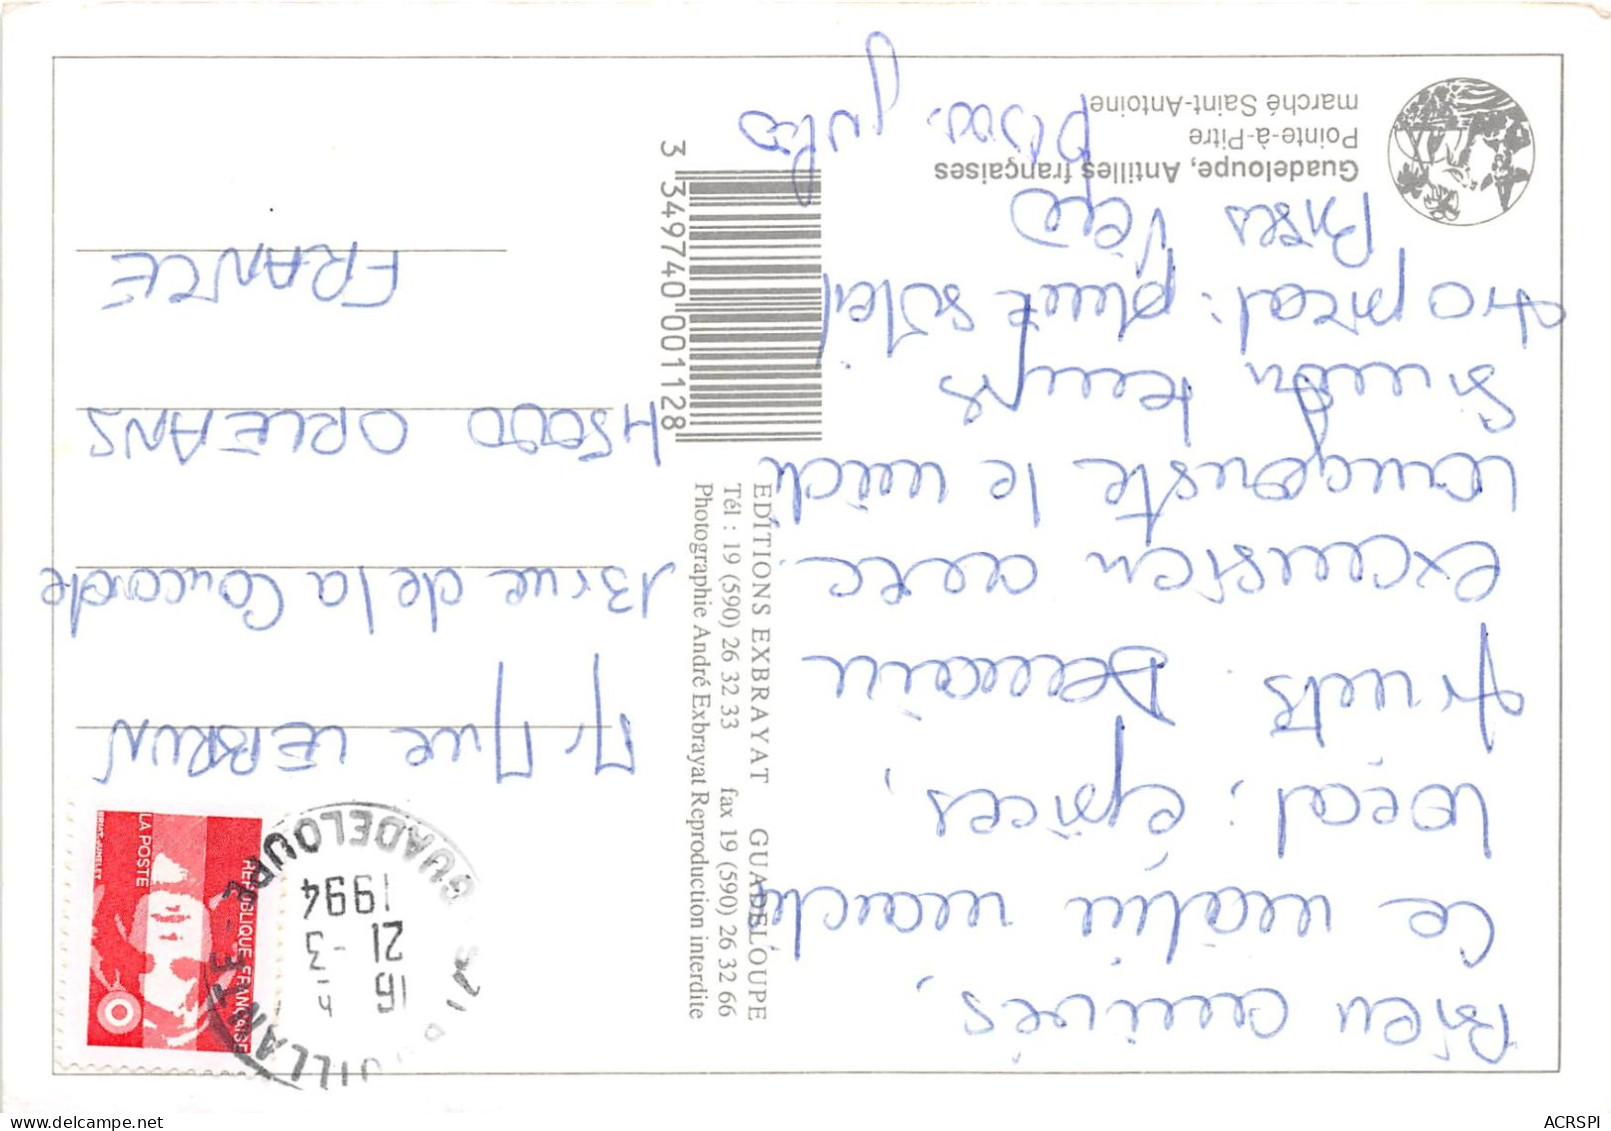 Bien arrivés,
Ce matin marché
local : épices,
fruits. Demain
excursion avec
langouste le midi
Sinon temps
tropical : pluie soleil
Bises Véro
Bisou. Jules
Guadeloupe, Antilles françaises
Pointe-à-Pitre
marché Saint-Antoine
3 349740 001128
EDITIONS EXBRAYAT GUADELOUPE
Tél : 19 (590) 26 32 33 fax 19 (590) 26 32 66
Photographie André Exbrayat Reproduction interdite
LA POSTE
REPUBLIQUE FRANÇAISE
BRIAT-JUMELET
GUADELOUPE
16
21 -3
1994
Mr Mme LEBRUN
13 rue de la Concorde
45000 ORLEANS
FRANCE
ACRSPI